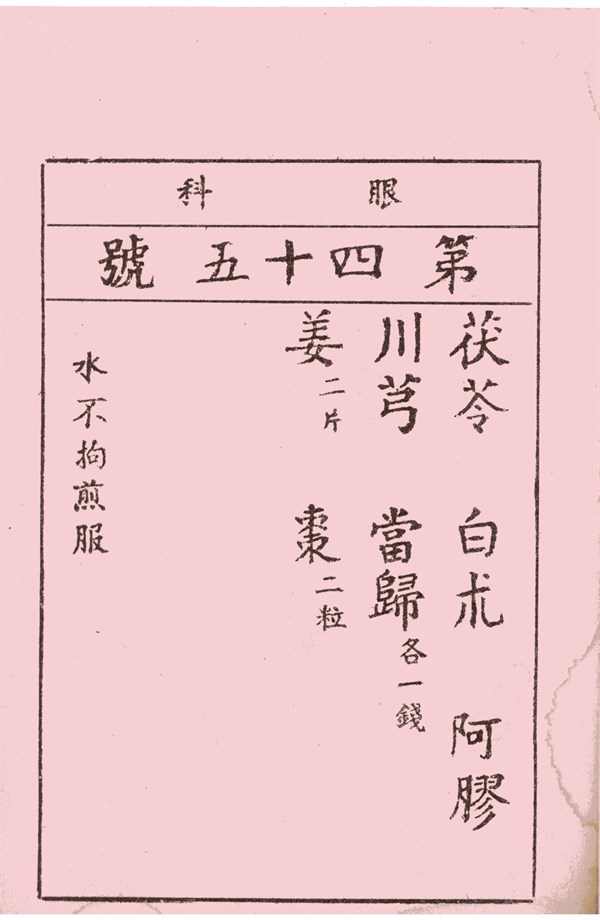 眼科
第四十五號
茯苓 白朮 阿膠
川芎 當歸各一錢
姜二片 棗二粒
水不拘煎服